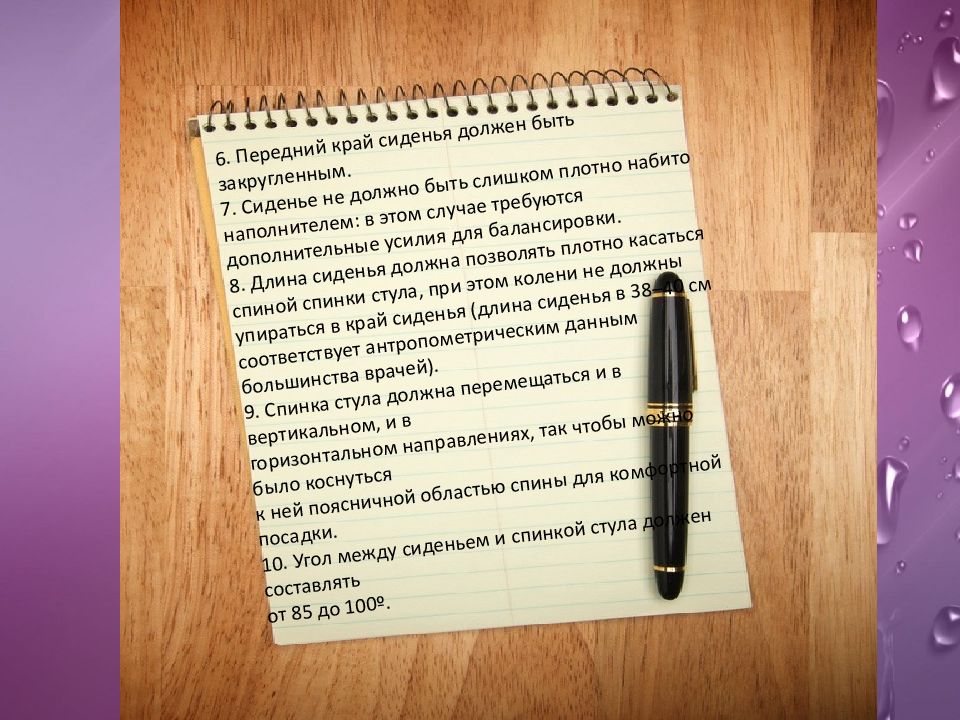 6. Передний край сиденья должен быть
закругленным.
7. Сиденье не должно быть слишком плотно набито
наполнителем: в этом случае требуются
дополнительные усилия для балансировки.
8. Длина сиденья должна позволять плотно касаться
спиной спинки стула, при этом колени не должны
упираться в край сиденья (длина сиденья в 38–40 см
соответствует антропометрическим данным
большинства врачей).
9. Спинка стула должна перемещаться и в
вертикальном, и в
горизонтальном направлениях, так чтобы можно
было коснуться
к ней поясничной областью спины для комфортной
посадки.
10. Угол между сиденьем и спинкой стула должен
составлять
от 85 до 100º.